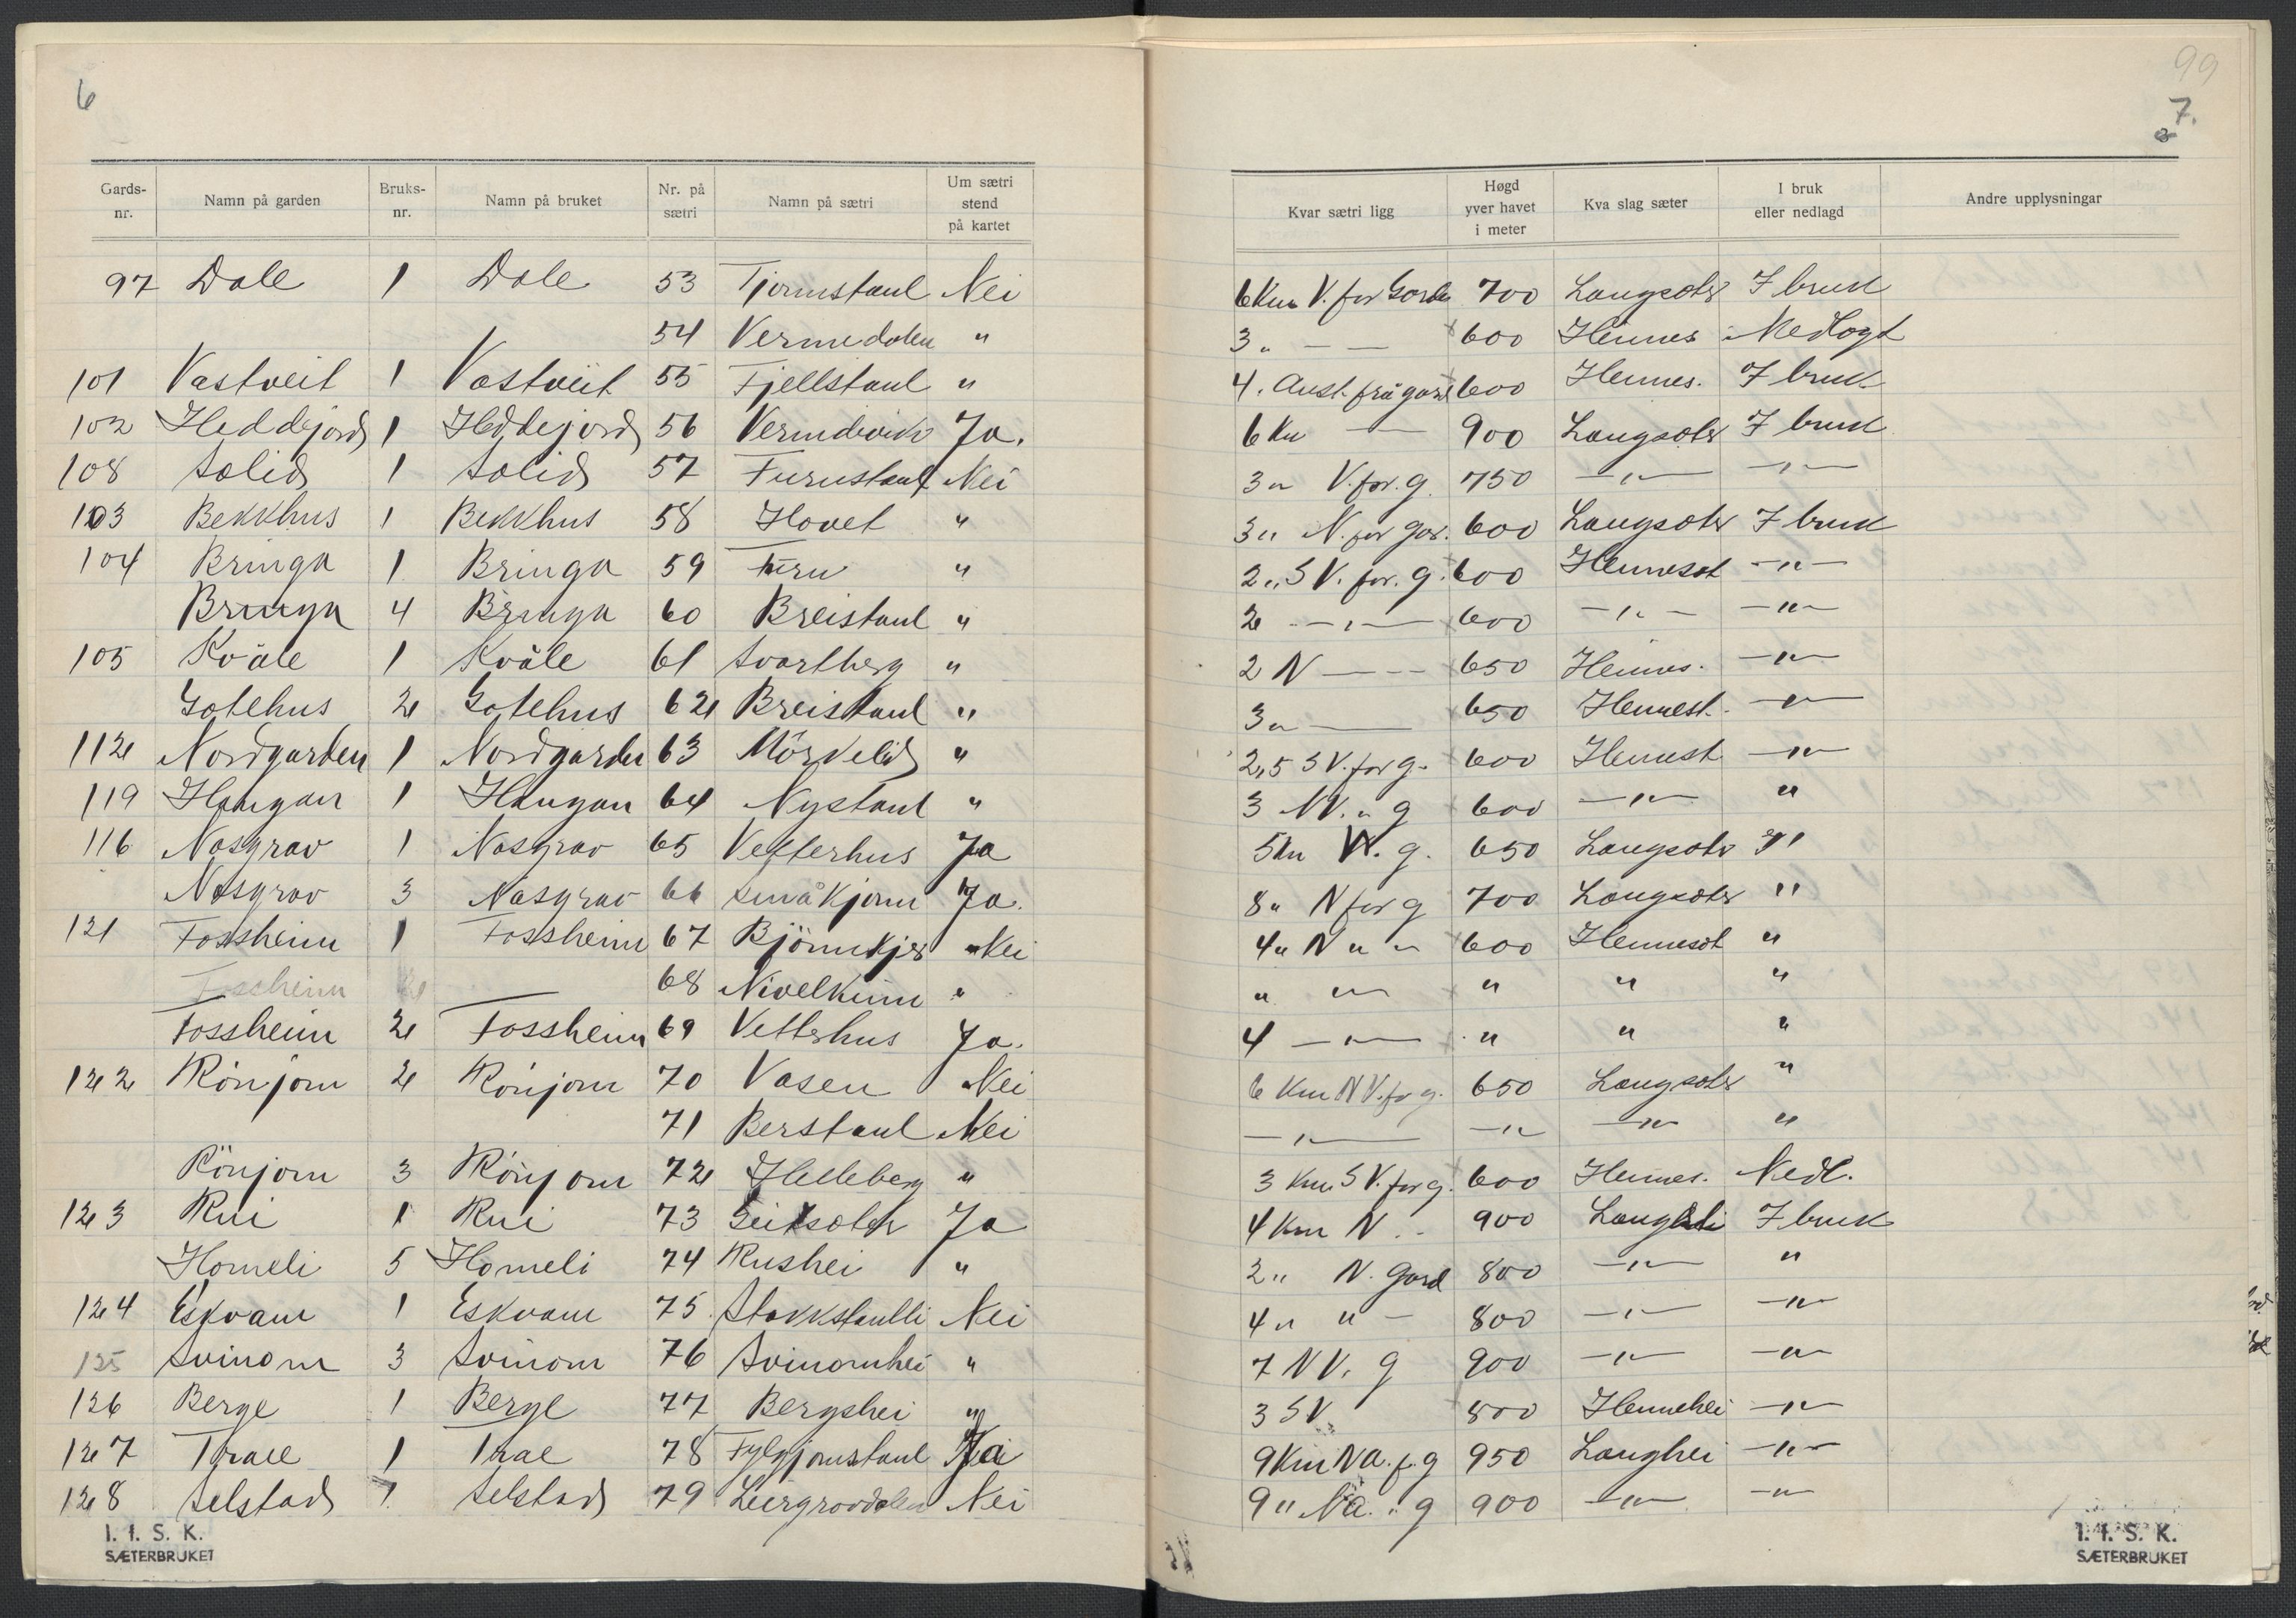 6
Gards-nr. Namn på garden Bruks-nr. Namn på bruket Nr. på sætri Namn på sætri Um sætri stend på kartet
97 Dale 1 Dale 53 Tjørnstaul Nei
54 Vermedalen "
101 Vastveit 1 Vastveit 55 Fjellstaul "
102 Heddejord 1 Heddejord 56 Vermdevik Ja.
108 Solid 1 Solid 57 Furustaul Nei
103 Bekkhus 1 Bekkhus 58 Hovet "
104 Bringa 1 Bringa 59 Furu "
Bringa 4 Bringa 60 Breistaul "
105 Kvåle 1 Kvåle 61 Svartberg "
Gotehus 2 Gotehus 62 Breistaul "
112 Nordgarden 1 Nordgarden 63 Mörkelid "
119 Haugan 1 Haugan 64 Nystaul "
116 Nasgrav 1 Nasgrav 65 Vetterhus Ja
Nasgrav 3 Nasgrav 66 Småkjørn Ja.
121 Fossheim 1 Fossheim 67 Björnekjer Nei
Fossheim 2 68 "
Fossheim 2 Fossheim 69 Vetterhus Ja.
122 Rönjom 2 Rönjom 70 Vasen Nei
71 Berstaul Nei
Rönjom 3 Rönjom 72 Helleberg "
123 Rui 1 Rui 73 Geitsoter Ja
Homeli 5 Homeli 74 Rushei "
124 Eskvam 1 Eskvam 75 Stokkstaulli Nei
125 Svinom 3 Svinom 76 Svinomhei "
126 Berge 1 Berge 77 Bergshei "
127 Trae 1 Trae 78 Fylgjomstaul Ja
128 Selstad 7 Selstad 79 Leergrovdalen Nei
I. f. S. K.
SÆTERBRUKET
99
7.
Kvar sætri ligg Høgd yver havet i meter Kva slag sæter I bruk eller nedlagd Andre upplysningar
6 Km V. for Garde 700 Langsoter I bruk
3 " — — 600 Heimes Nedlagt
4. Aust. frå gard 600 Heimes. I bruk
6 Km — 900 Langsoter I bruk
3 " V. for. g. 750 —"— —"—
3 " N. for gar. 600 Langsoter I bruk
2 " SV. for. g. 600 Heimesot —"—
2 —"— 600 —"— —"—
2 N — — 650 Heimes. —"—
3 " — 650 Heimest. —"—
2,5 SV. for g. 600 Heimest —"—
3 NV. " g 600 —"— "
5 Km V. g. 650 Langsoter "
8 " N for g 700 Langsoter "
4 " N " " 600 Heimesot "
" " " " "
4 —"— " " "
6 Km NV. for g. 650 Langsoter "
—"— —"— —"— "
3 Km SV. for g. 600 Heimes. Nedl.
4 Km N " 900 Langhei I bruk
2 " N. Gard 800 —"— "
4 " " - 800 —"— —"—
7 NV. g 900 —"— —"—
3 SV 800 Heimehei —"—
9 Km NA. f. g 950 Langhei —"—
9 " NA. " g 900 —"— —"—
I. f. S. K.
SÆTERBRUKET